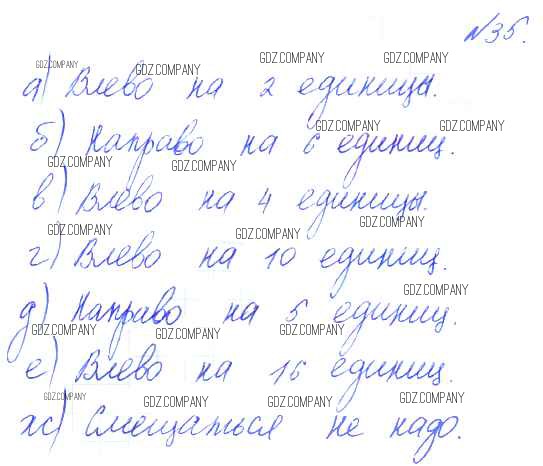 №35.
а) Влево на 2 единицы.
б) Направо на 6 единиц.
в) Влево на 4 единицы.
г) Влево на 10 единиц.
д) Направо на 5 единиц.
е) Влево на 16 единиц.
ж) Смещаться не надо.
GDZ.COMPANY GDZ.COMPANY
GDZ.COMPANY GDZ.COMPANY
GDZ.COMPANY GDZ.COMPANY
GDZ.COMPANY GDZ.COMPANY
GDZ.COMPANY
GDZ.COMPANY GDZ.COMPANY
GDZ.COMPANY
GDZ.COMPANY GDZ.COMPANY GDZ.COMPANY
GDZ.COMPANY GDZ.COMPANY GDZ.COMPANY GDZ.COMPANY